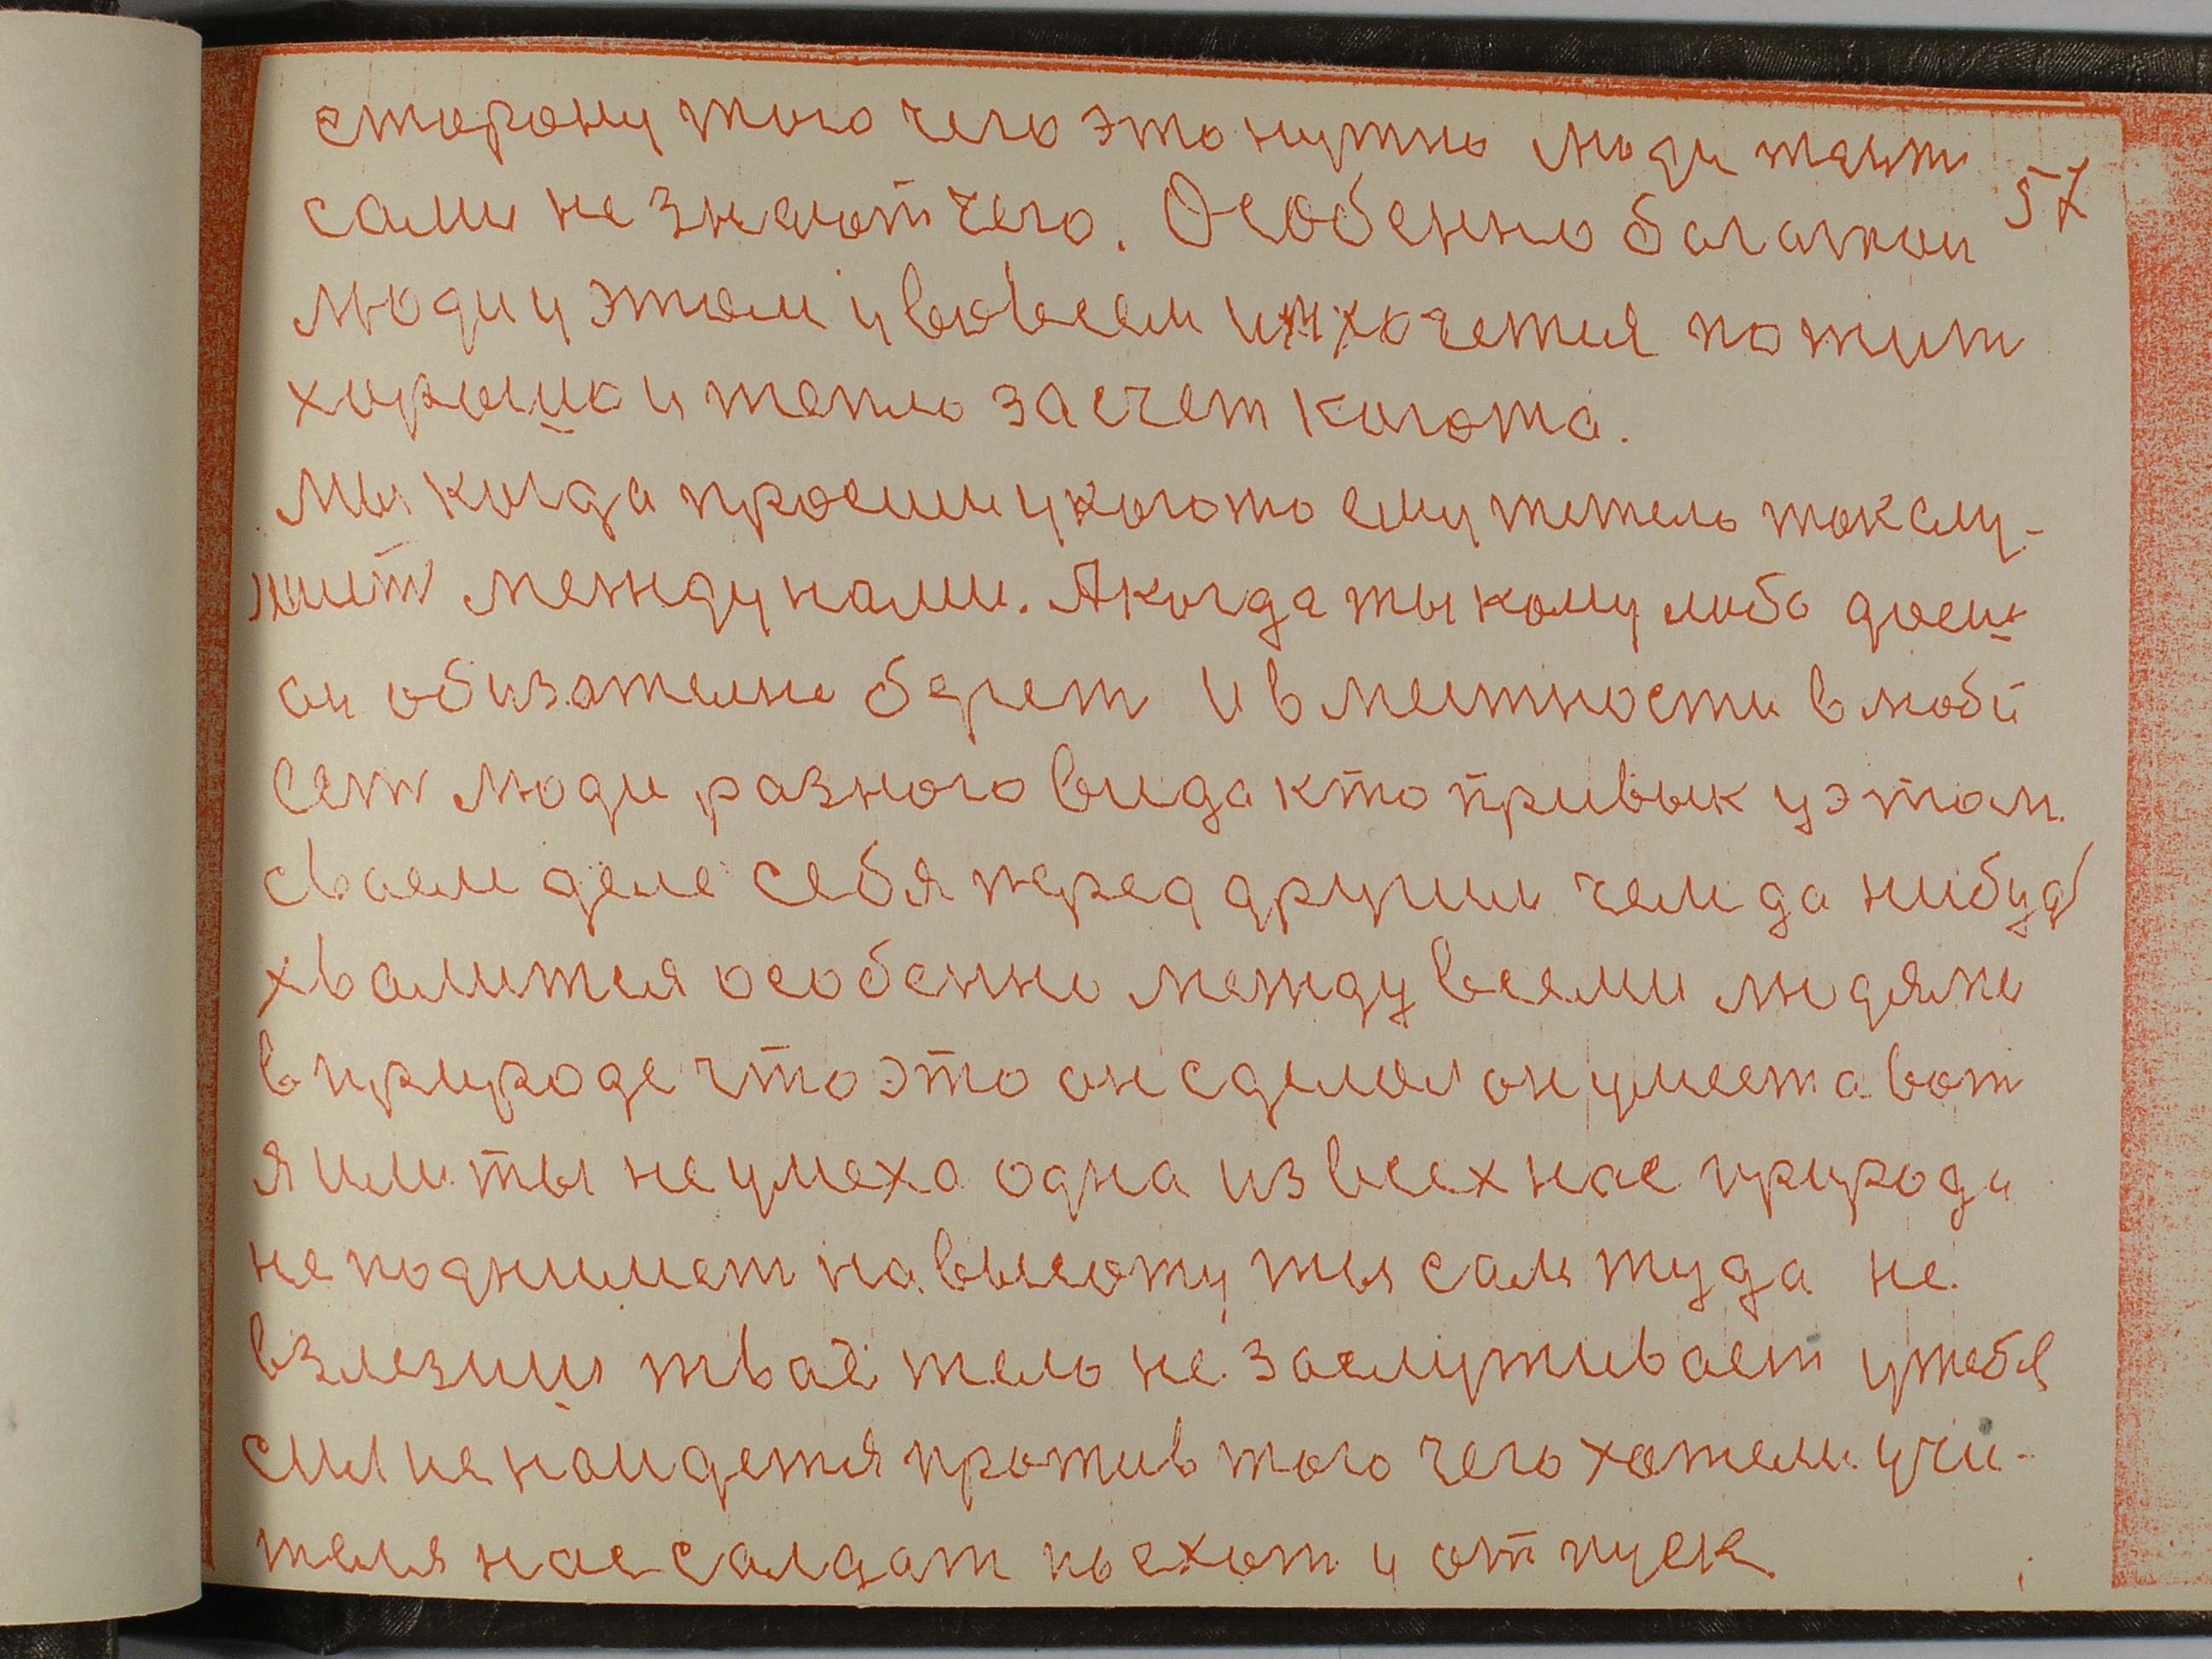 сторону того чего это нужно люди
сами не знают чего. Особенно багатои
57
люди у этом и вовсем им хочетя пожит
хорошо и тепло за счет когота.
Мы когда просим укогото ему тежело так слу-
жит между нами. А когда ты кому либо даеш
он обизателно бдует И в местности влюбй
сет люди разного вида кто привык у этом
сваем деле себя перед другим чем да нибудь
хвалится особенно между всеми людями
в природе что это он сделал он умеет а вот
я или ты не умеха одна из всех нас природа
не поднимает на высоту ты сам туда не
взлезиш тваё тело не заслуживает у тебя
сил не найдетя против того чего хотели учи-
теля нас салдат поехат у отпуск